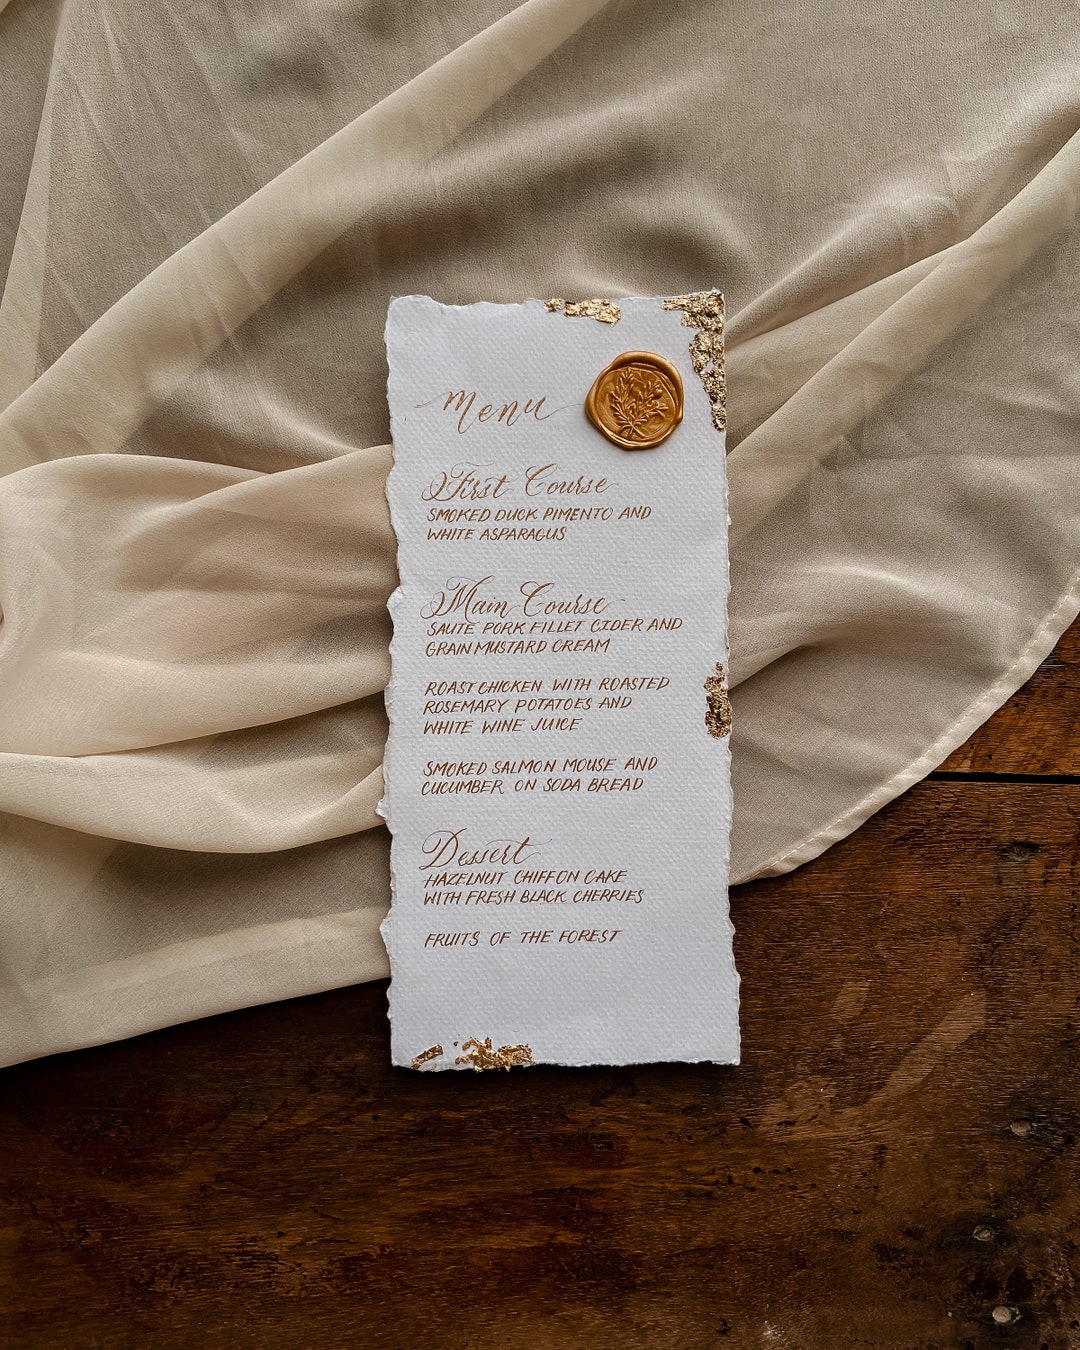 Menu
First Course
SMOKED DUCK PIMENTO AND
WHITE ASPARAGUS
Main Course
SAUTE PORK FILLET CIDER AND
GRAIN MUSTARD CREAM
ROAST CHICKEN WITH ROASTED
ROSEMARY POTATOES AND
WHITE WINE JUICE
SMOKED SALMON MOUSE AND
CUCUMBER ON SODA BREAD
Dessert
HAZELNUT CHIFFON CAKE
WITH FRESH BLACK CHERRIES
FRUITS OF THE FOREST